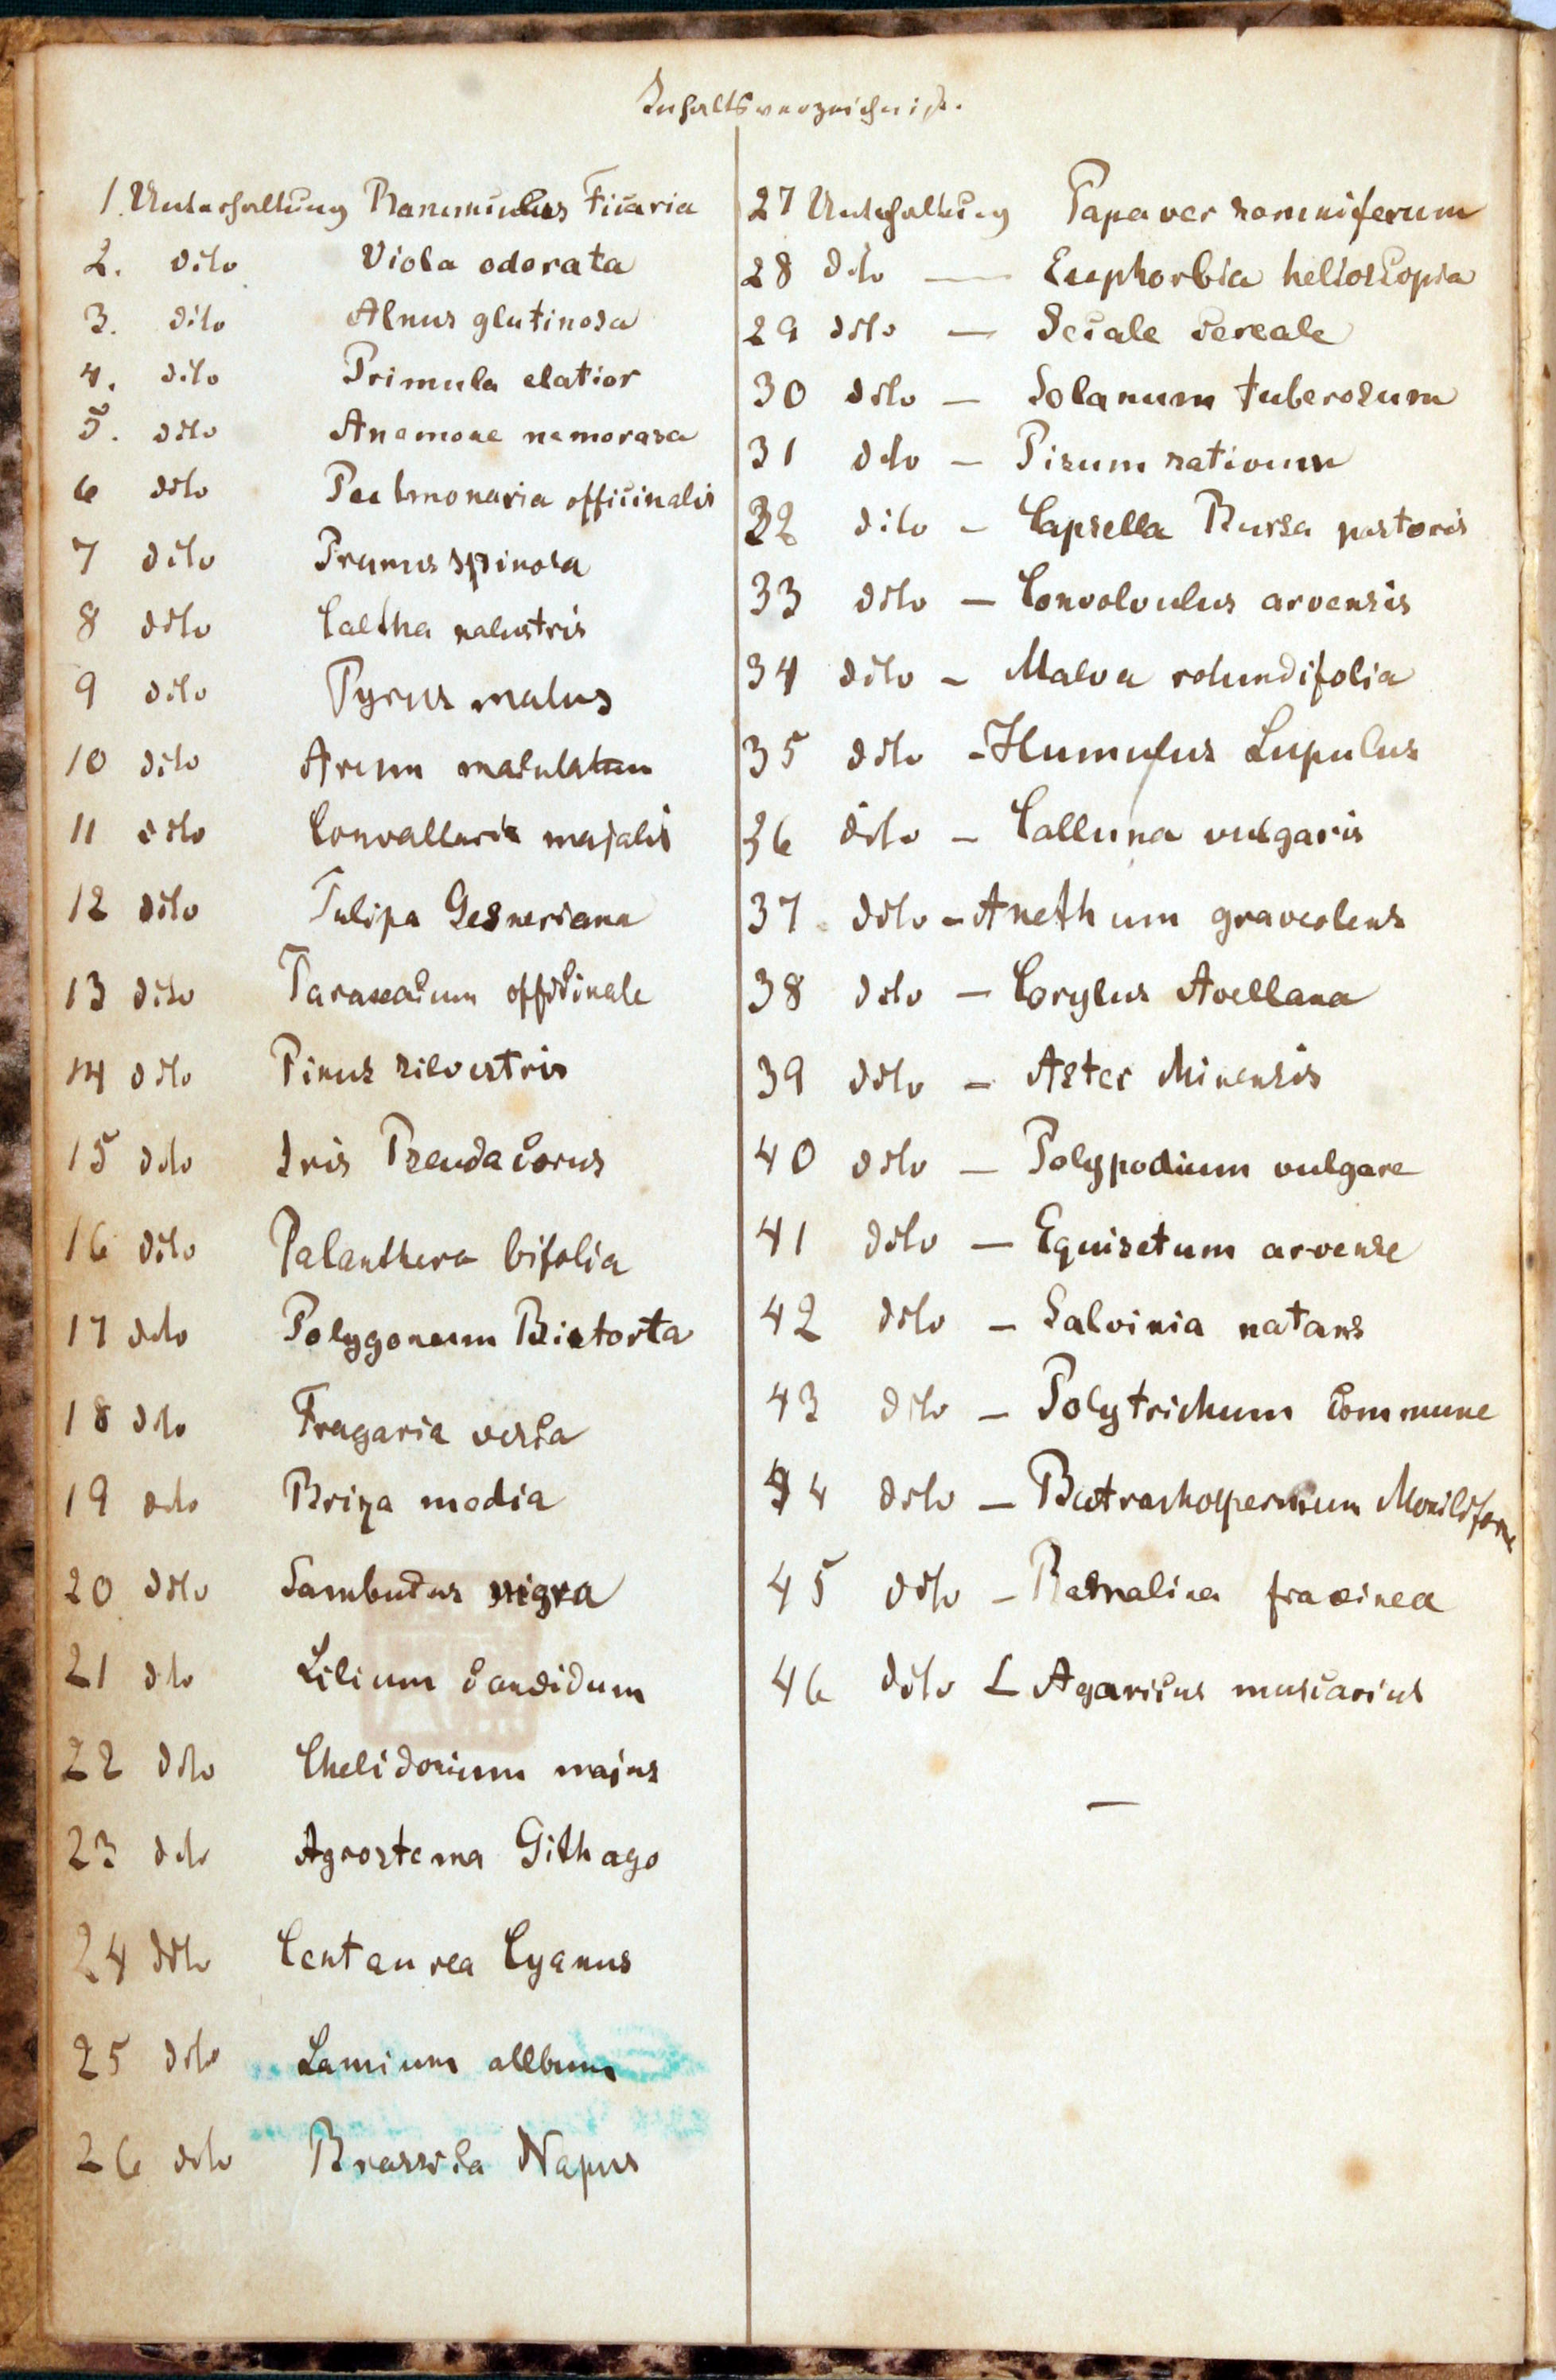 Inhaltsverzeichniß.
1. Unterhaltung Ranunculus Ficaria
2. dito Viola odorata
3. dito Alnus glutinosa
4. dito Primula elatior
5. dito Anemone nemorosa
6 dito Pulmonaria officinalis
7 dito Prunus spinosa
8 dito Caltha palustris
9 dito Pyrus malus
10 dito Arum maculatum
11 dito Convallaria majalis
12 dito Tulipa Gesneriana
13 dito Taraxacum officinale
14 dito Pinus silvestris
15 dito Iris Pseudacorus
16 dito Palanthera bifolia
17 dito Polygonum Bistorta
18 dito Fragaria vesca
19 dito Briza media
20 dito Sambucus nigra
21 dito Lilium candidum
22 dito Chelidonium majus
23 dito Agrostema Githago
24 dito Centaurea Cyanus
25 dito Lamium allbum
26 dito Brassica Napus
27 Unterhaltung Papaver somniferum
28 dito — Euphorbia helioscopia
29 dito — Secale cereale
30 dito — Solanum tuberosum
31 dito — Pisum sativum
32 dito — Capsella Bursa pastoris
33 dito — Convolvulus arvensis
34 dito — Malva rotundifolia
35 dito — Humulus Lupulus
36 dito — Calluna vulgaris
37 dito — Anethum graveolens
38 dito — Corylus Avellana
39 dito — Aster chinensis
40 dito — Polypodium vulgare
41 dito — Equisetum arvense
42 dito — Salvinia natans
43 dito — Polytrichum commune
44 dito — Batrachospermum Moniliforme
45 dito — Ramalina fraxinea
46 dito — Agaricus muscarius